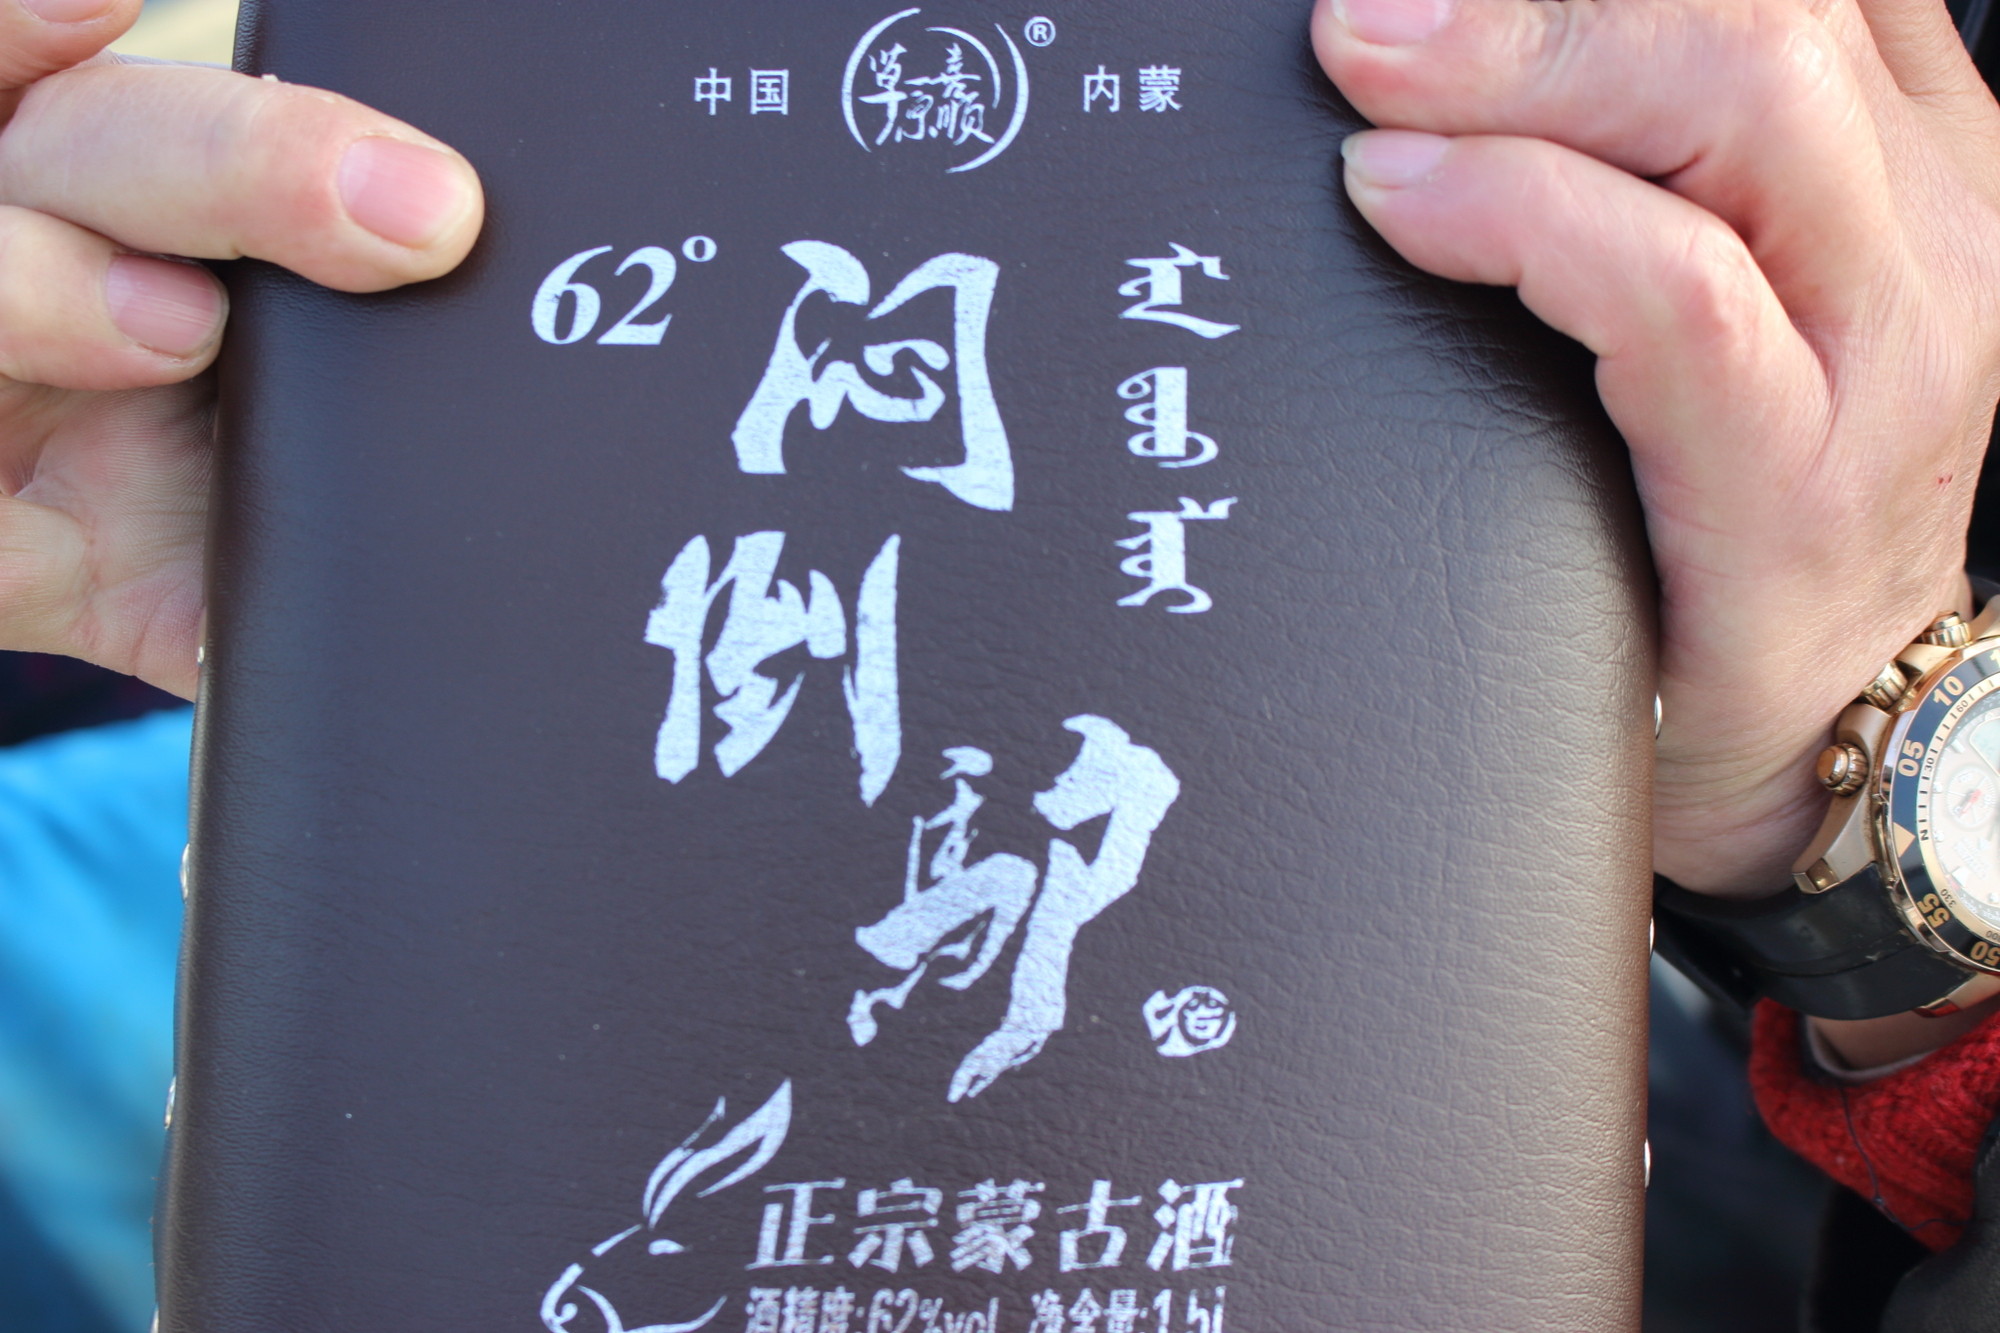 中国 草原喜顺 ® 内蒙
62°
闷倒驴
酒
正宗蒙古酒
酒精度:62%vol 净含量:1.5l
10
05
N
55
50